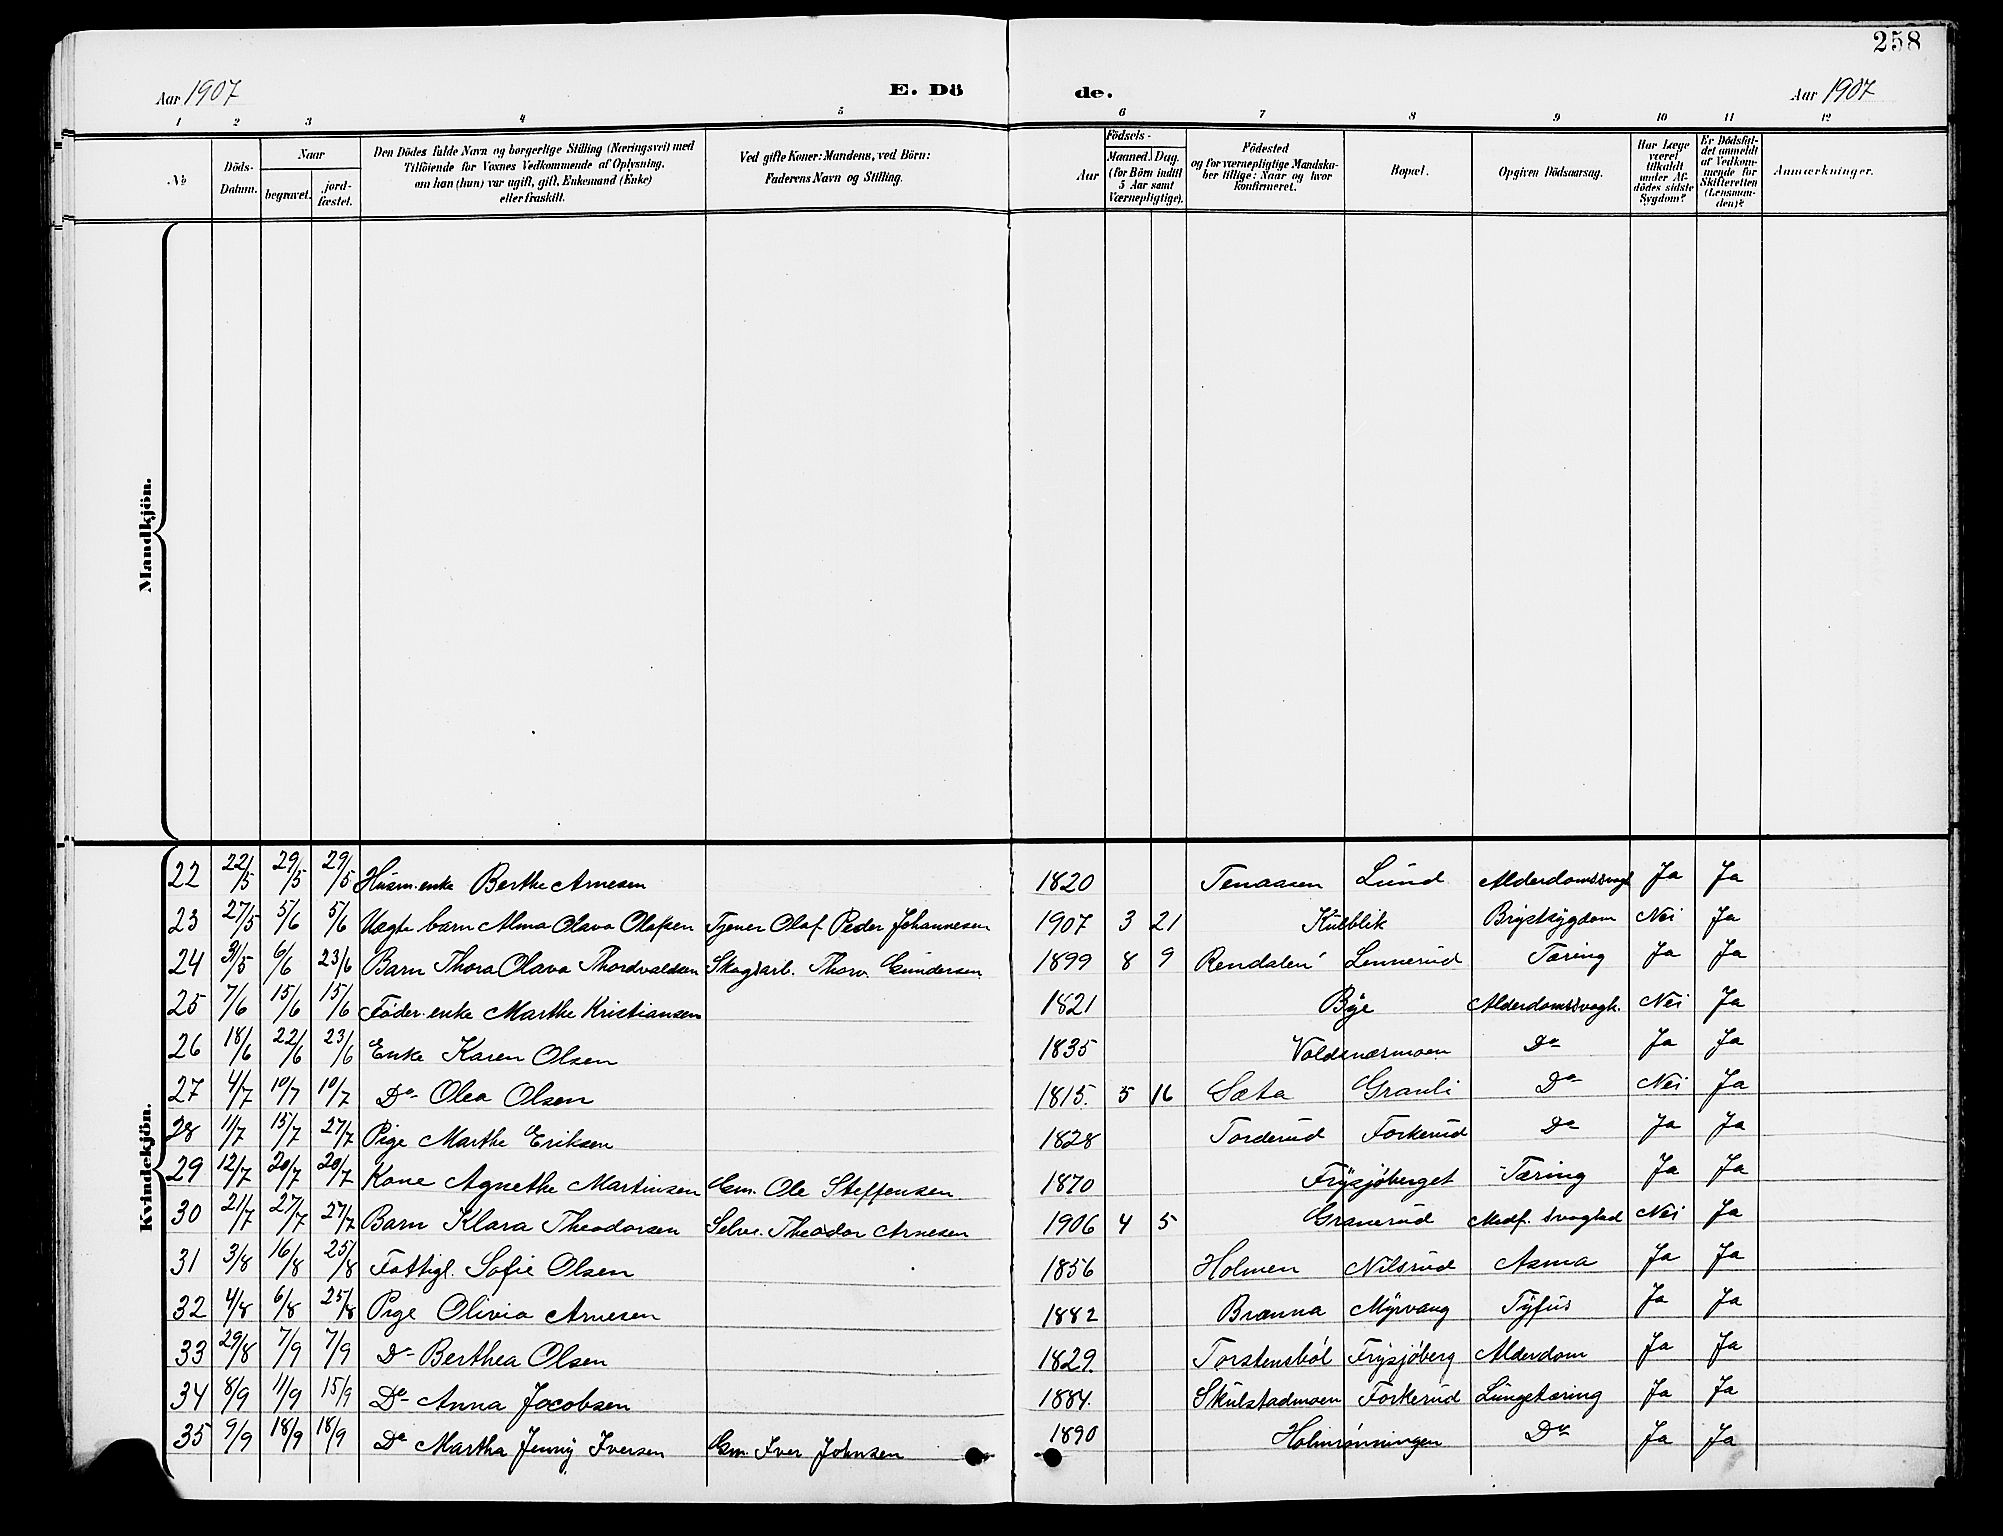 258
Aar 1907 E. Dö de. Aar 1907
1 2 3 4 5 6 7 8 9 10 11 12
№
Döds-Datum.
Naar
begravet.
jord-fæstet.
Den Dödes fulde Navn og borgerlige Stilling (Næringsvei) med
Tilföiende for Voxnes Vedkommende af Oplysning,
om han (hun) var ugift, gift, Enkemand (Enke)
eller fraskilt.
Ved gifte Koner: Mandens, ved Börn:
Faderens Navn og Stilling.
Födsels-
Aar
Maaned. Dag.
(for Börn indtil
5 Aar samt
Værnepligtige).
Födested
og for værnepligtige Mandska-
ber tillige: Naar og hvor
konfirmeret.
Bopæl.
Opgiven Dödsaarsag.
Har Læge
været
tilkaldt
under Af-
dödes sidste
Sygdom?
Er Dödsfal-
det anmeldt
af Vedkom-
mende for
Skifteretten
(Lensman-
den)?
Anmærkninger.
Mandkjön.
Kvindekjön.
22 22/5 29/5 29/5 Husm. enke Berthe Arnesen 1820 Tenaasen Lund Alderdomssvagh Ja Ja
23 27/5 5/6 5/6 Uegte barn Alma Olava Olafsen Tjener Olaf Peder Johannesen 1907 3 21 Kulblik Brystsygdom Nei Ja
24 31/5 6/6 23/6 Barn Thora Olava Thordvaldsen Skogsarb. Thorv. Gundersen 1899 8 9 Rendalen Lennerud Tæring Ja Ja
25 7/6 15/6 15/6 Föder. enke Marthe Kristiansen 1821 Bye Alderdomssvagh. Nei Ja
26 18/6 22/6 23/6 Enke Karen Olsen 1835 Voldsnæsmoen Do Ja Ja
27 4/7 10/7 10/7 Do Olea Olsen 1815. 5 16 Sæta Granli Do Nei Ja
28 11/7 15/7 27/7 Pige Marthe Eriksen 1828 Torderud Forkerud Do Ja Ja
29 12/7 20/7 20/7 Kone Agnethe Martinsen Gm. Ole Steffensen 1870 Frysjöberget Tæring Ja Ja
30 21/7 27/7 27/7 Barn Klara Theodorsen Selve. Theodor Arnesen 1906 4 5 Granerud Medf. svaghed Nei Ja
31 3/8 16/8 25/8 Fattigl. Sofie Olsen 1856 Holmen Nilsrud Asma Ja Ja
32 4/8 6/8 25/8 Pige Olivia Arnesen 1882 Brænna Myrvang Tyfus Ja Ja
33 29/8 7/9 7/9 Do Berthea Olsen 1829. Torstensböl Frysjöberg Alderdom Ja Ja
34 8/9 11/9 15/9 Do Anna Jocobsen 1884. Skulstadmoen Forkerud Lungetæring Ja Ja
35 9/9 18/9 18/9 Do Martha Jenny Iversen Gm. Iver Johnsen 1890 Holmrönningen Do Ja Ja